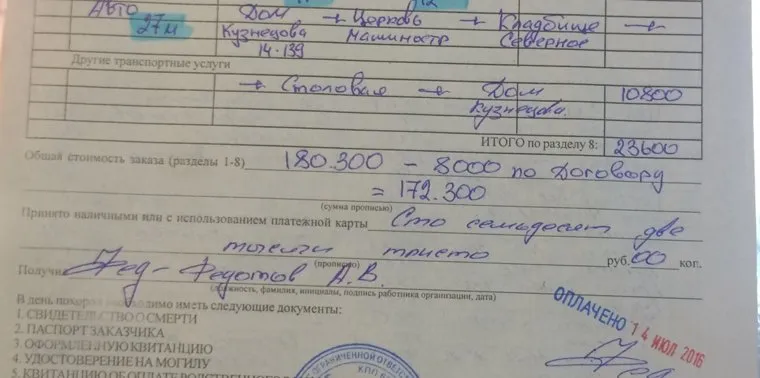 Авто Дом → Церковь → Кладбище →
27м Кузнецова Машиностр Северное
14-139
Другие транспортные услуги
→ Столовая → Дом 10800
Кузнецова.
ИТОГО по разделу 8: 23600
Общая стоимость заказа (разделы 1-8) 180.300 - 8000 по Договору
= 172.300
(сумма прописью)
Принято наличными или с использованием платежной карты Сто семьдесят две
тысячи триста руб. 00 коп.
(прописью)
Получил Федотов А.В.
(должность, фамилия, инициалы, подпись работника организации, дата)
В день похорон необходимо иметь следующие документы:
ОПЛАЧЕНО 14 ИЮЛ 2016
1. СВИДЕТЕЛЬСТВО О СМЕРТИ
2. ПАСПОРТ ЗАКАЗЧИКА
3. ОФОРМЛЕННУЮ КВИТАНЦИЮ
4. УДОСТОВЕРЕНИЕ НА МОГИЛУ
5. КВИТАНЦИЮ ОБ ОПЛАТЕ
ОГРАНИЧЕННОЙ ОТВЕТС
КПП